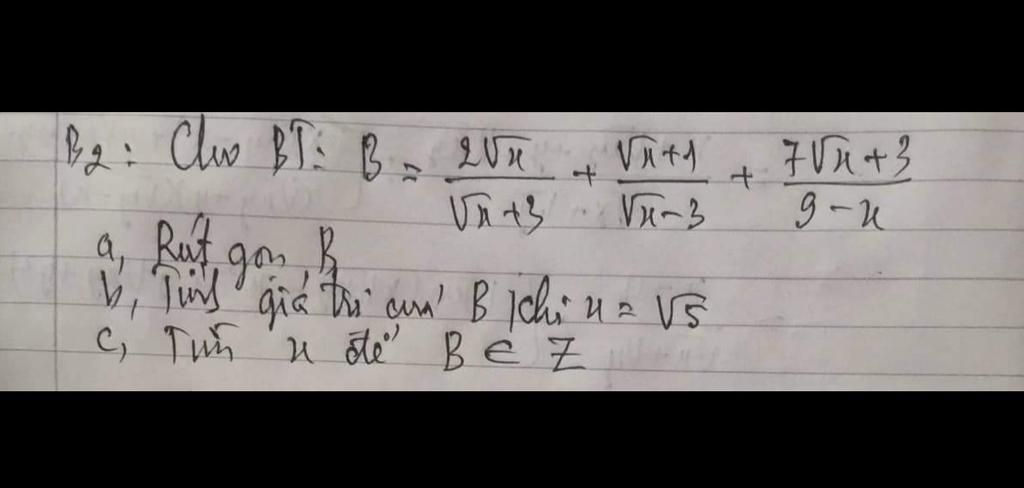 B2: Cho BT: B = \frac{2\sqrt{x}}{\sqrt{x}+3} + \frac{\sqrt{x}+1}{\sqrt{x}-3} + \frac{7\sqrt{x}+3}{9-x}
a, Rút gọn B
b, Tính giá trị của B khi x = √5
c, Tìm x để B ∈ Z